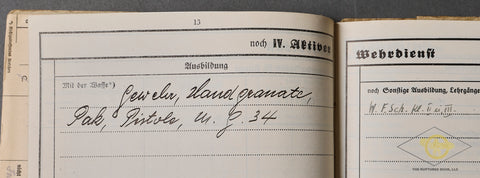 13
noch IV. Aktiver
Wehrdienst
Ausbildung
Mit der Waffe*)
Gewehr, Handgranate,
Pak, Pistole, M. G. 34
noch Sonstige Ausbildung, Lehrgänge
W. F. Sch. Kl. I u. III.
THE RUPTURED DUCK, LLC